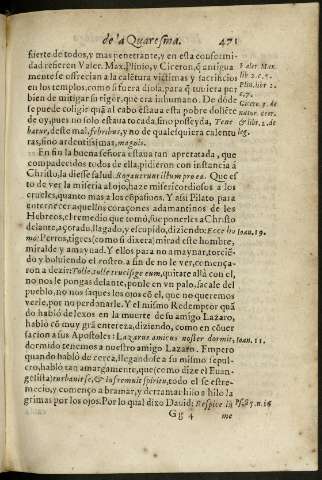 de la Quaresma. 471
fuerte de todos, y mas penetrante, y en esta conformi-
dad refieren Valer. Max. Plinio, y Ciceron, q̃ antigua
mente se offrecian a la calẽtura victimas y sacrificios
en los templos, como si fuera diosa, para q̃ tuviera por
bien de mitigar su rigor, que era inhumano. De dõde
se puede coligir quã al cabo estaua esta pobre doliẽte
de oy, pues no solo estaua tocada, sino posseyda, Tene
batur, deste mal, febribus, y no de qualesquiera calentu
ras, sino ardentissimas, magnis.
En fin la buena señora estaua tan apretada, que
compadecidos todos de ella, pidieron con instancia á
Christo, la diesse salud. Rogauerunt illum pro ea. Que es
to de ver la miseria al ojo, haze misericordiosos a los
crueles, quanto mas a los cõpassiuos. Y assi Pilato para
enternecer aquellos coraçones adamantinos de los
Hebreos, el remedio que tomó, fue ponerles a Christo
delante, açotado, llagado, y el cupido, diziendo: Ecce ho
mo: Perros, tigres (como si dixera) mirad este hombre,
miralde y amaynad. Y ellos para no amaynar, torciẽ-
do y boluiendo el rostro a fin de no le ver, comença-
ron a dezir: Tolle, tolle crucifige eum, quitate allà con el,
no nos le pongas delante, ponle en vn palo, sacale del
pueblo, no nos saques los ojos cõ el, que no queremos
verle, por no perdonarle. Y el mismo Redemptor quã
do habló de lexos en la muerte de su amigo Lazaro,
habló cõ muy grã entereza, diziendo, como en cõuer
sacion a sus Apostoles: Lazarus amicus noster dormit,
dormido tenemos a nuestro amigo Lazaro. Empero
quando habló de cerca, llegandose a su mismo sepul-
cro, habló tan amargamente, que (como dize el Euan-
gelista) turbauit se, & infremuit spiritu, todo el se estre-
mecio, y començo a bramar, y derramar hilo a hilo la
grimas por los ojos. Por lo qual dixo Dauid: Respice in
Gg 4 me
Valer. Max.
lib 2. c. 5.
Plin. libr. 2.
c. 7.
Cicero. 3. de
natur. deor.
& libr. 2. de
leg.
Ioan. 19.
Ioan. 11.